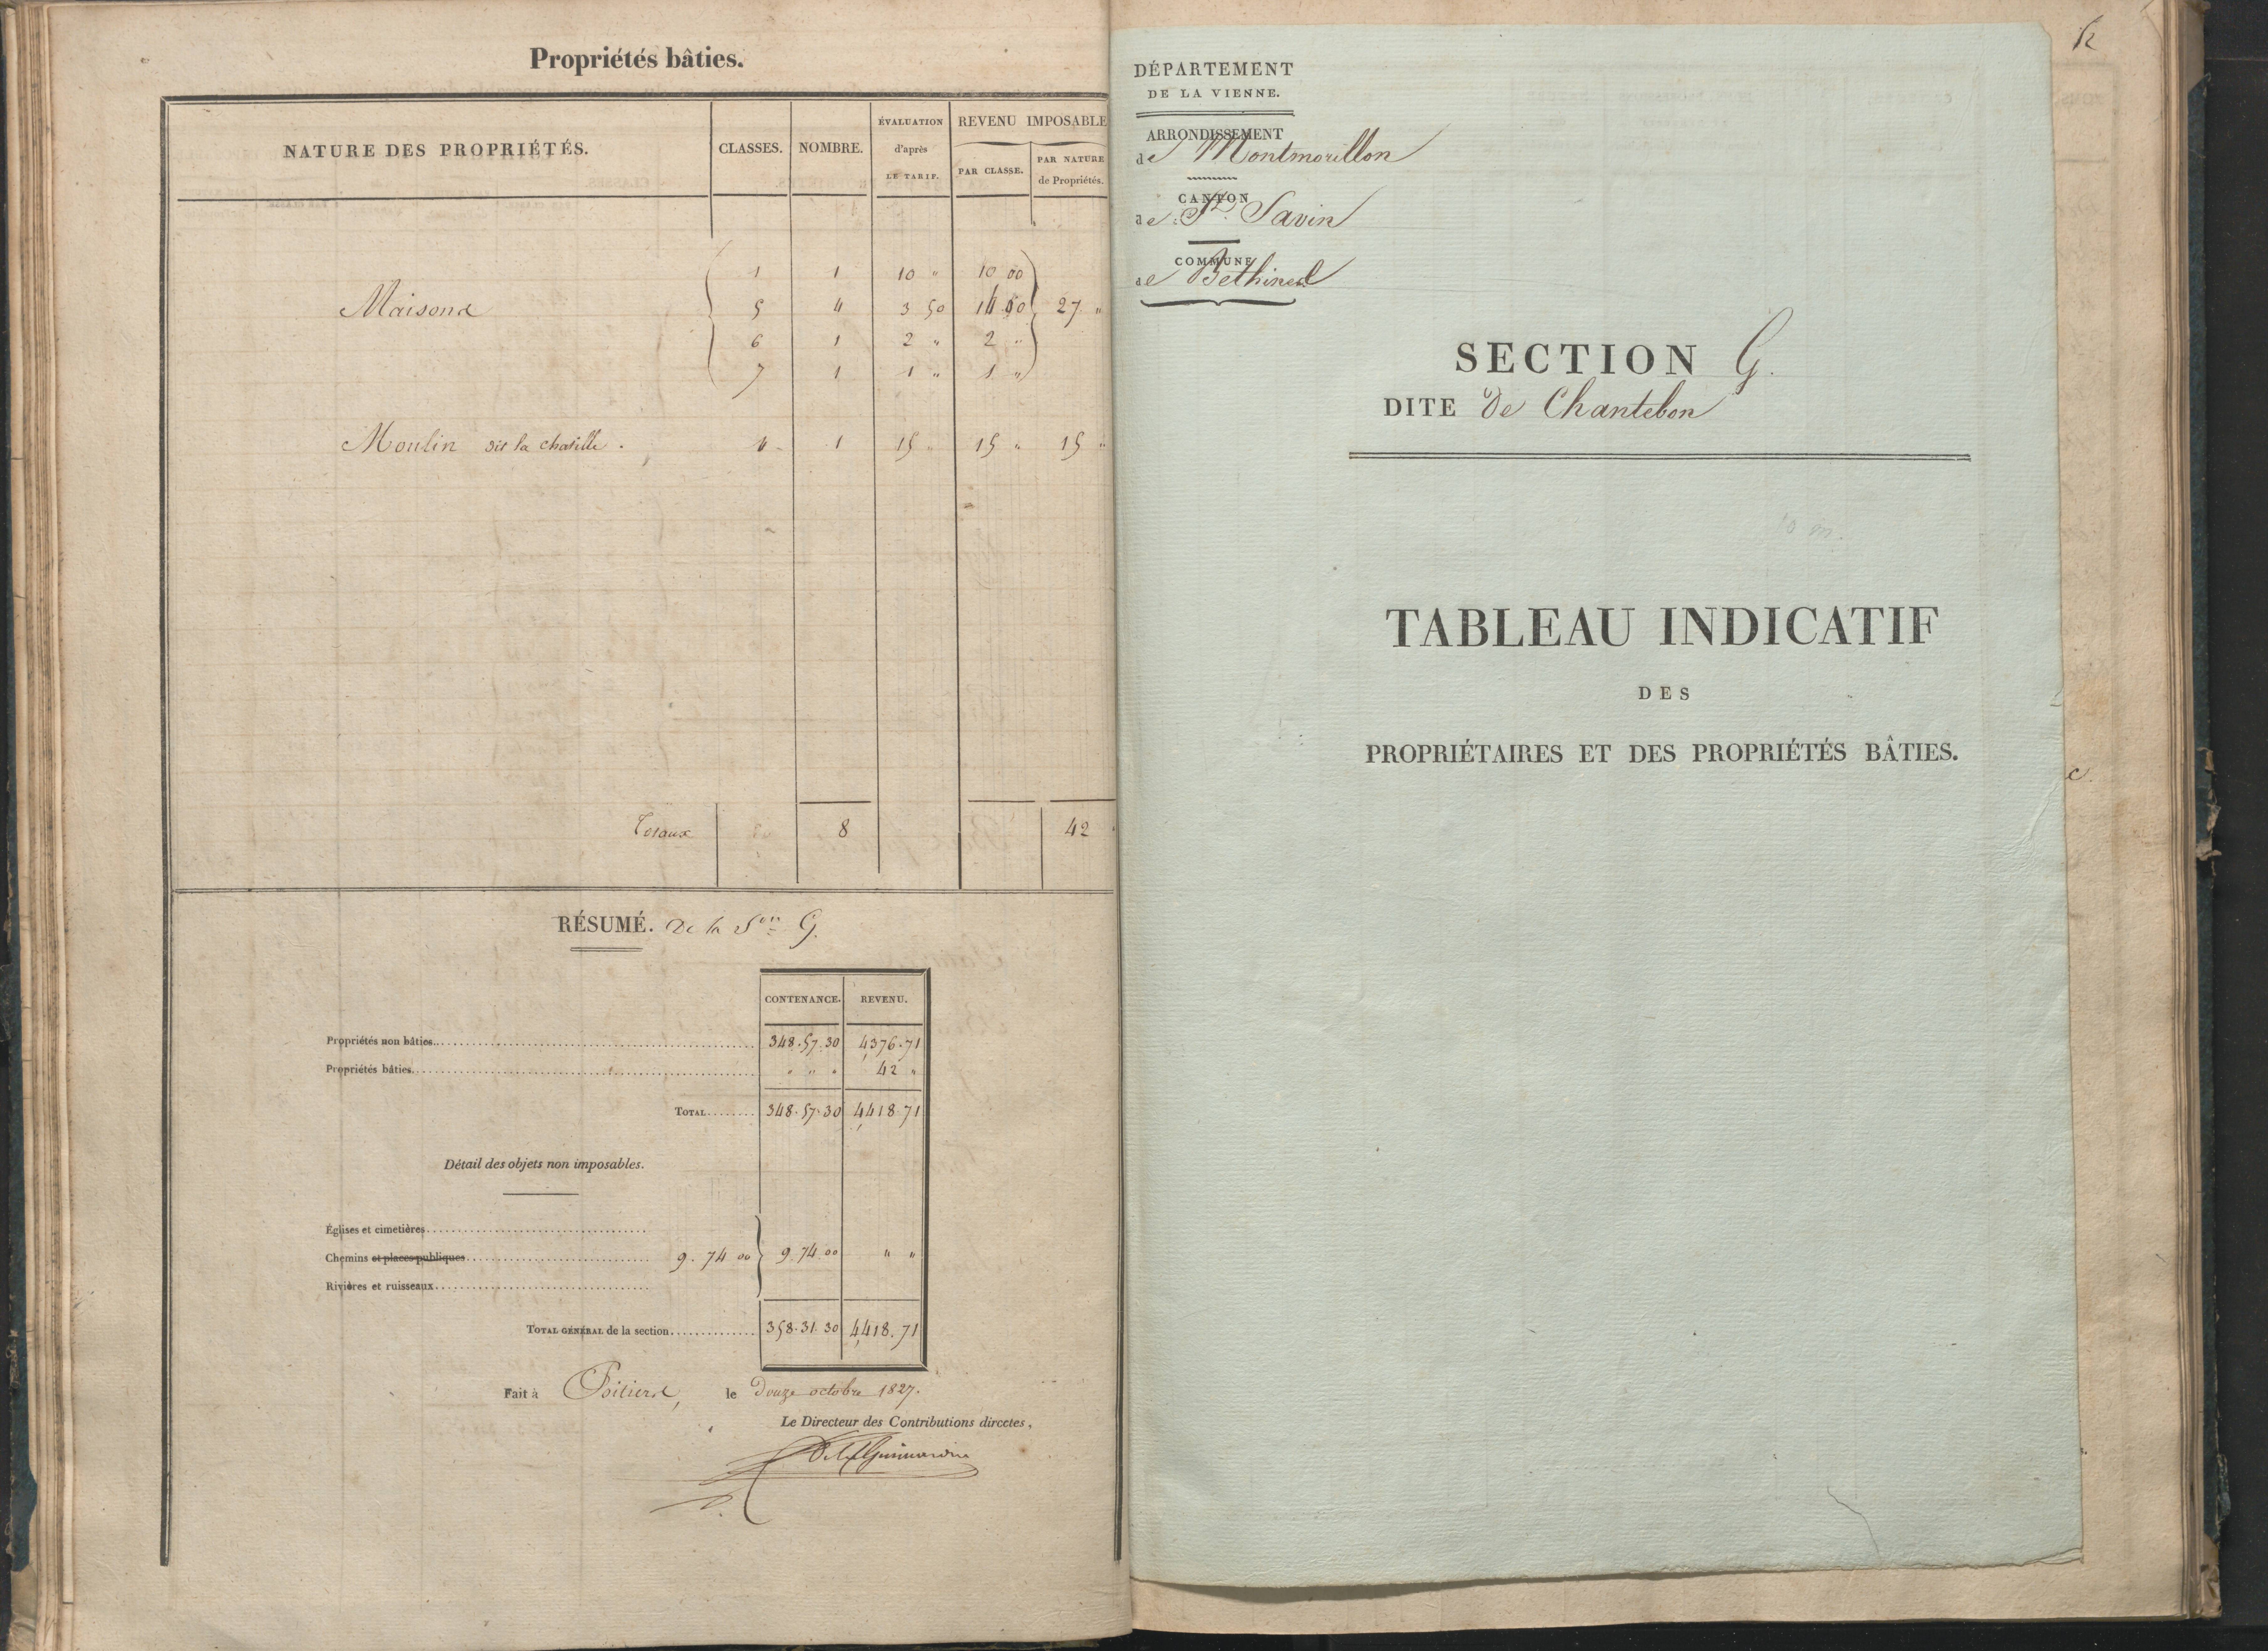 Propriétés bâties.
NATURE DES PROPRIÉTÉS. CLASSES. NOMBRE. ÉVALUATION d'après LE TARIF. REVENU IMPOSABLE PAR CLASSE. PAR NATURE de Propriétés.
1 1 10 " 10 00
Maisons 5 4 3 50 14 00 27 "
6 1 2 " 2 "
7 1 1 " 1 "
Moulin dit la 1 15 " 15 " 15 "
Totaux 8 42
RÉSUMÉ. De la Son G.
CONTENANCE. REVENU.
Propriétés non bâties 348.57.30 4376.71
Propriétés bâties " " " 42 "
TOTAL 348.57.30 4418.71
Détail des objets non imposables.
Églises et cimetières
Chemins et places publiques 9.74 00 9.74.00 " "
Rivières et ruisseaux
TOTAL GÉNÉRAL de la section 358.31.30 4418.71
Fait à Poitiers, le Douze octobre 1827.
Le Directeur des Contributions dircctes,
DÉPARTEMENT
DE LA VIENNE.
ARRONDISSEMENT
de Montmorillon
CANTON
de St. Savin
COMMUNE
de Bethines
SECTION G.
DITE De Chantebon
TABLEAU INDICATIF
DES
PROPRIÉTAIRES ET DES PROPRIÉTÉS BÂTIES.